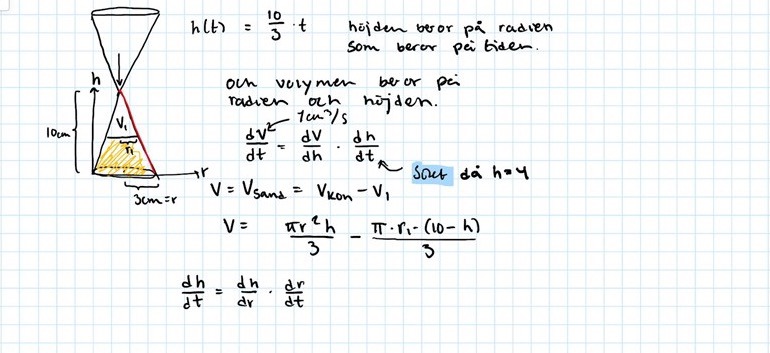 h(t) = 10/3 · t
höjden beror på radien
som beror på tiden.
och volymen beror på
radien och höjden.
1cm³/s
dV²/dt = dV/dh · dh/dt
Sökt då h=4
V = Vsand = Vkon - V₁
V = πr²h/3 - π·r₁·(10-h)/3
dh/dt = dh/dr · dr/dt
h
10cm
V₁
r₁
r
3cm=r